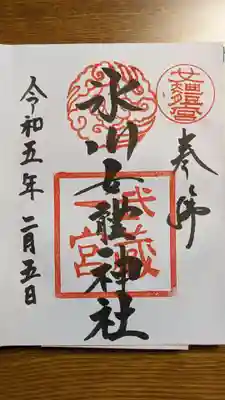 奉拝
武蔵
一宮
氷川女體神社
令和五年 二月五日